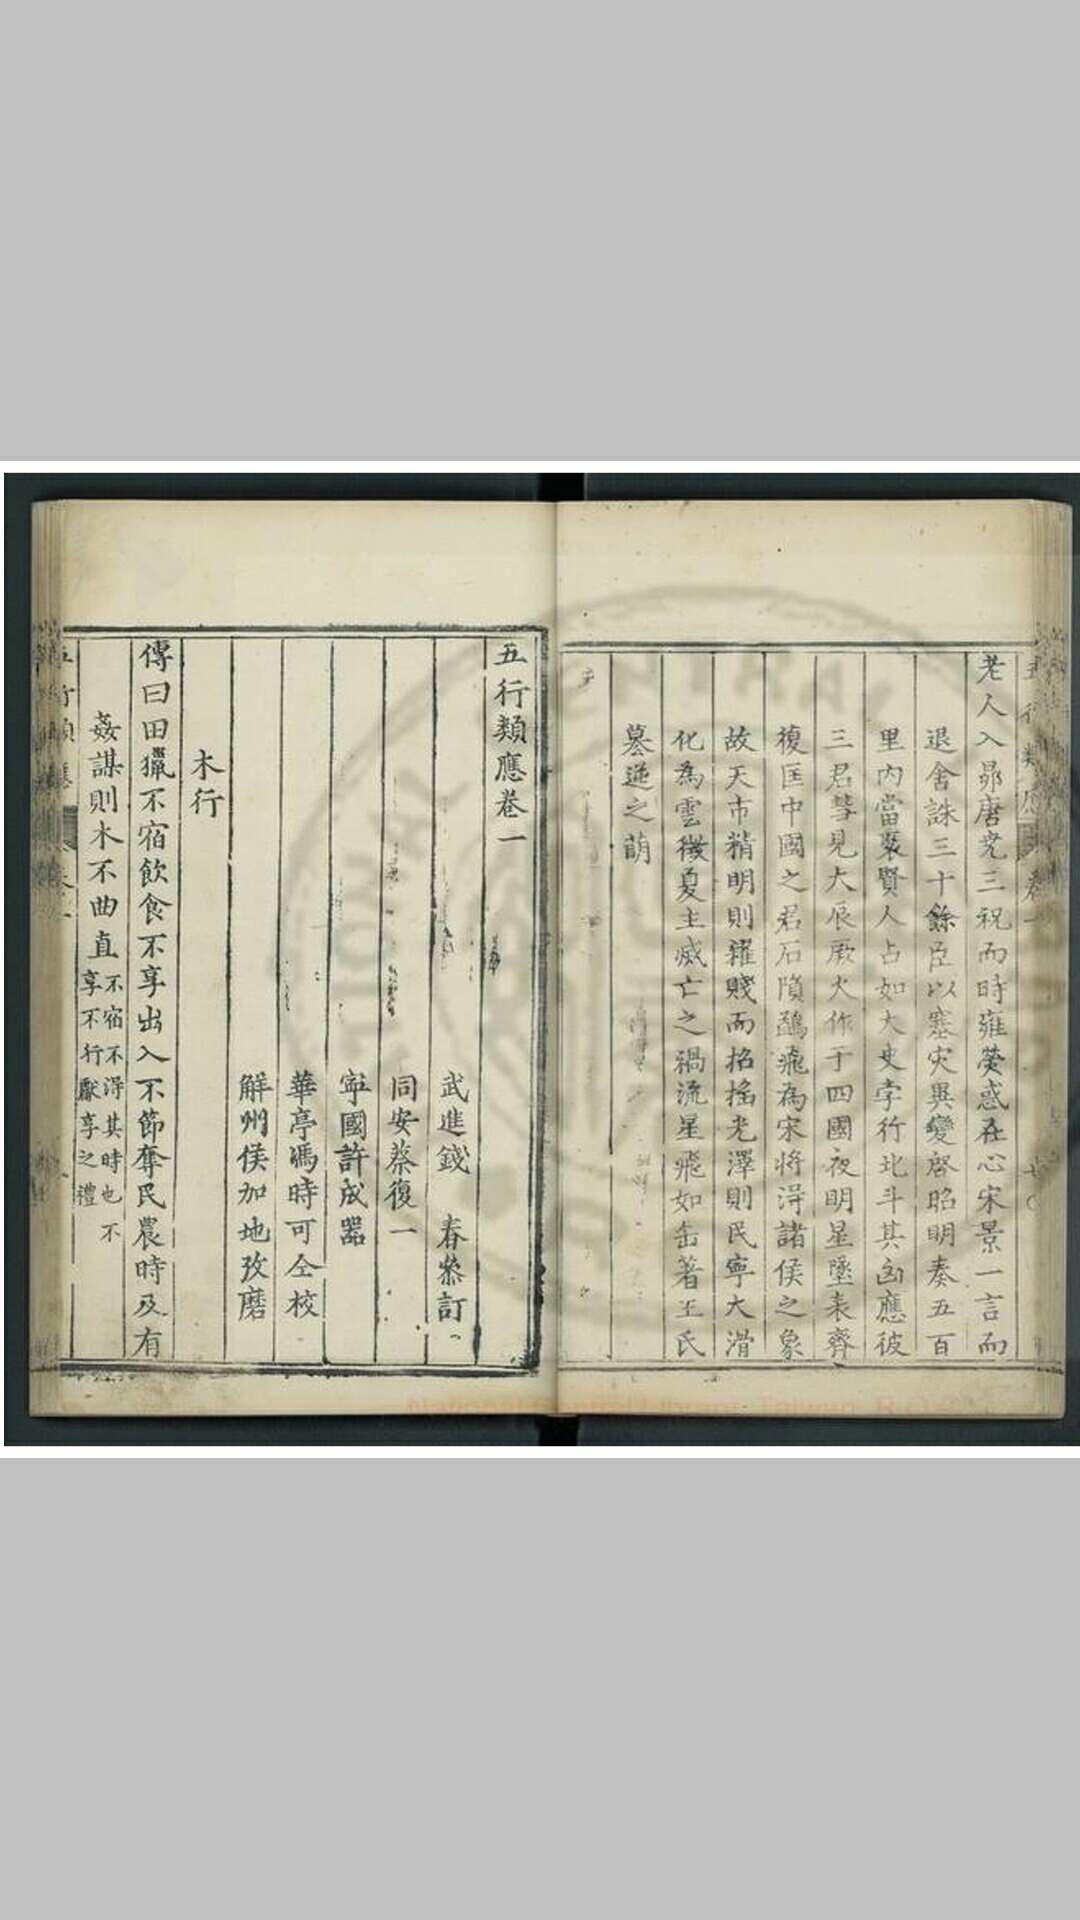 老人入昴唐堯三祝而時雍熒惑在心宋景一言而
退舍誅三十餘臣以塞灾異變啓昭明奏五百
里內當聚賢人占如大史孛行北斗其凶應彼
三君彗見大辰厥火作于四國夜明星墜表齊
復匡中國之君石隕鷁飛為宋將得諸侯之象
故天市精明則糴賤而招搖光澤則民寧大滑
化為雲徵夏主滅亡之禍流星飛如缶著王氏
篡逆之萌
五行類應卷一
武進錢 春叅訂
同安蔡復一
寧國許成器
華亭馮時可仝校
解州侯加地孜磨
木行
傳曰田獵不宿飲食不享出入不節奪民農時及有
姦謀則木不曲直不宿不得其時也不
享不行獻享之禮